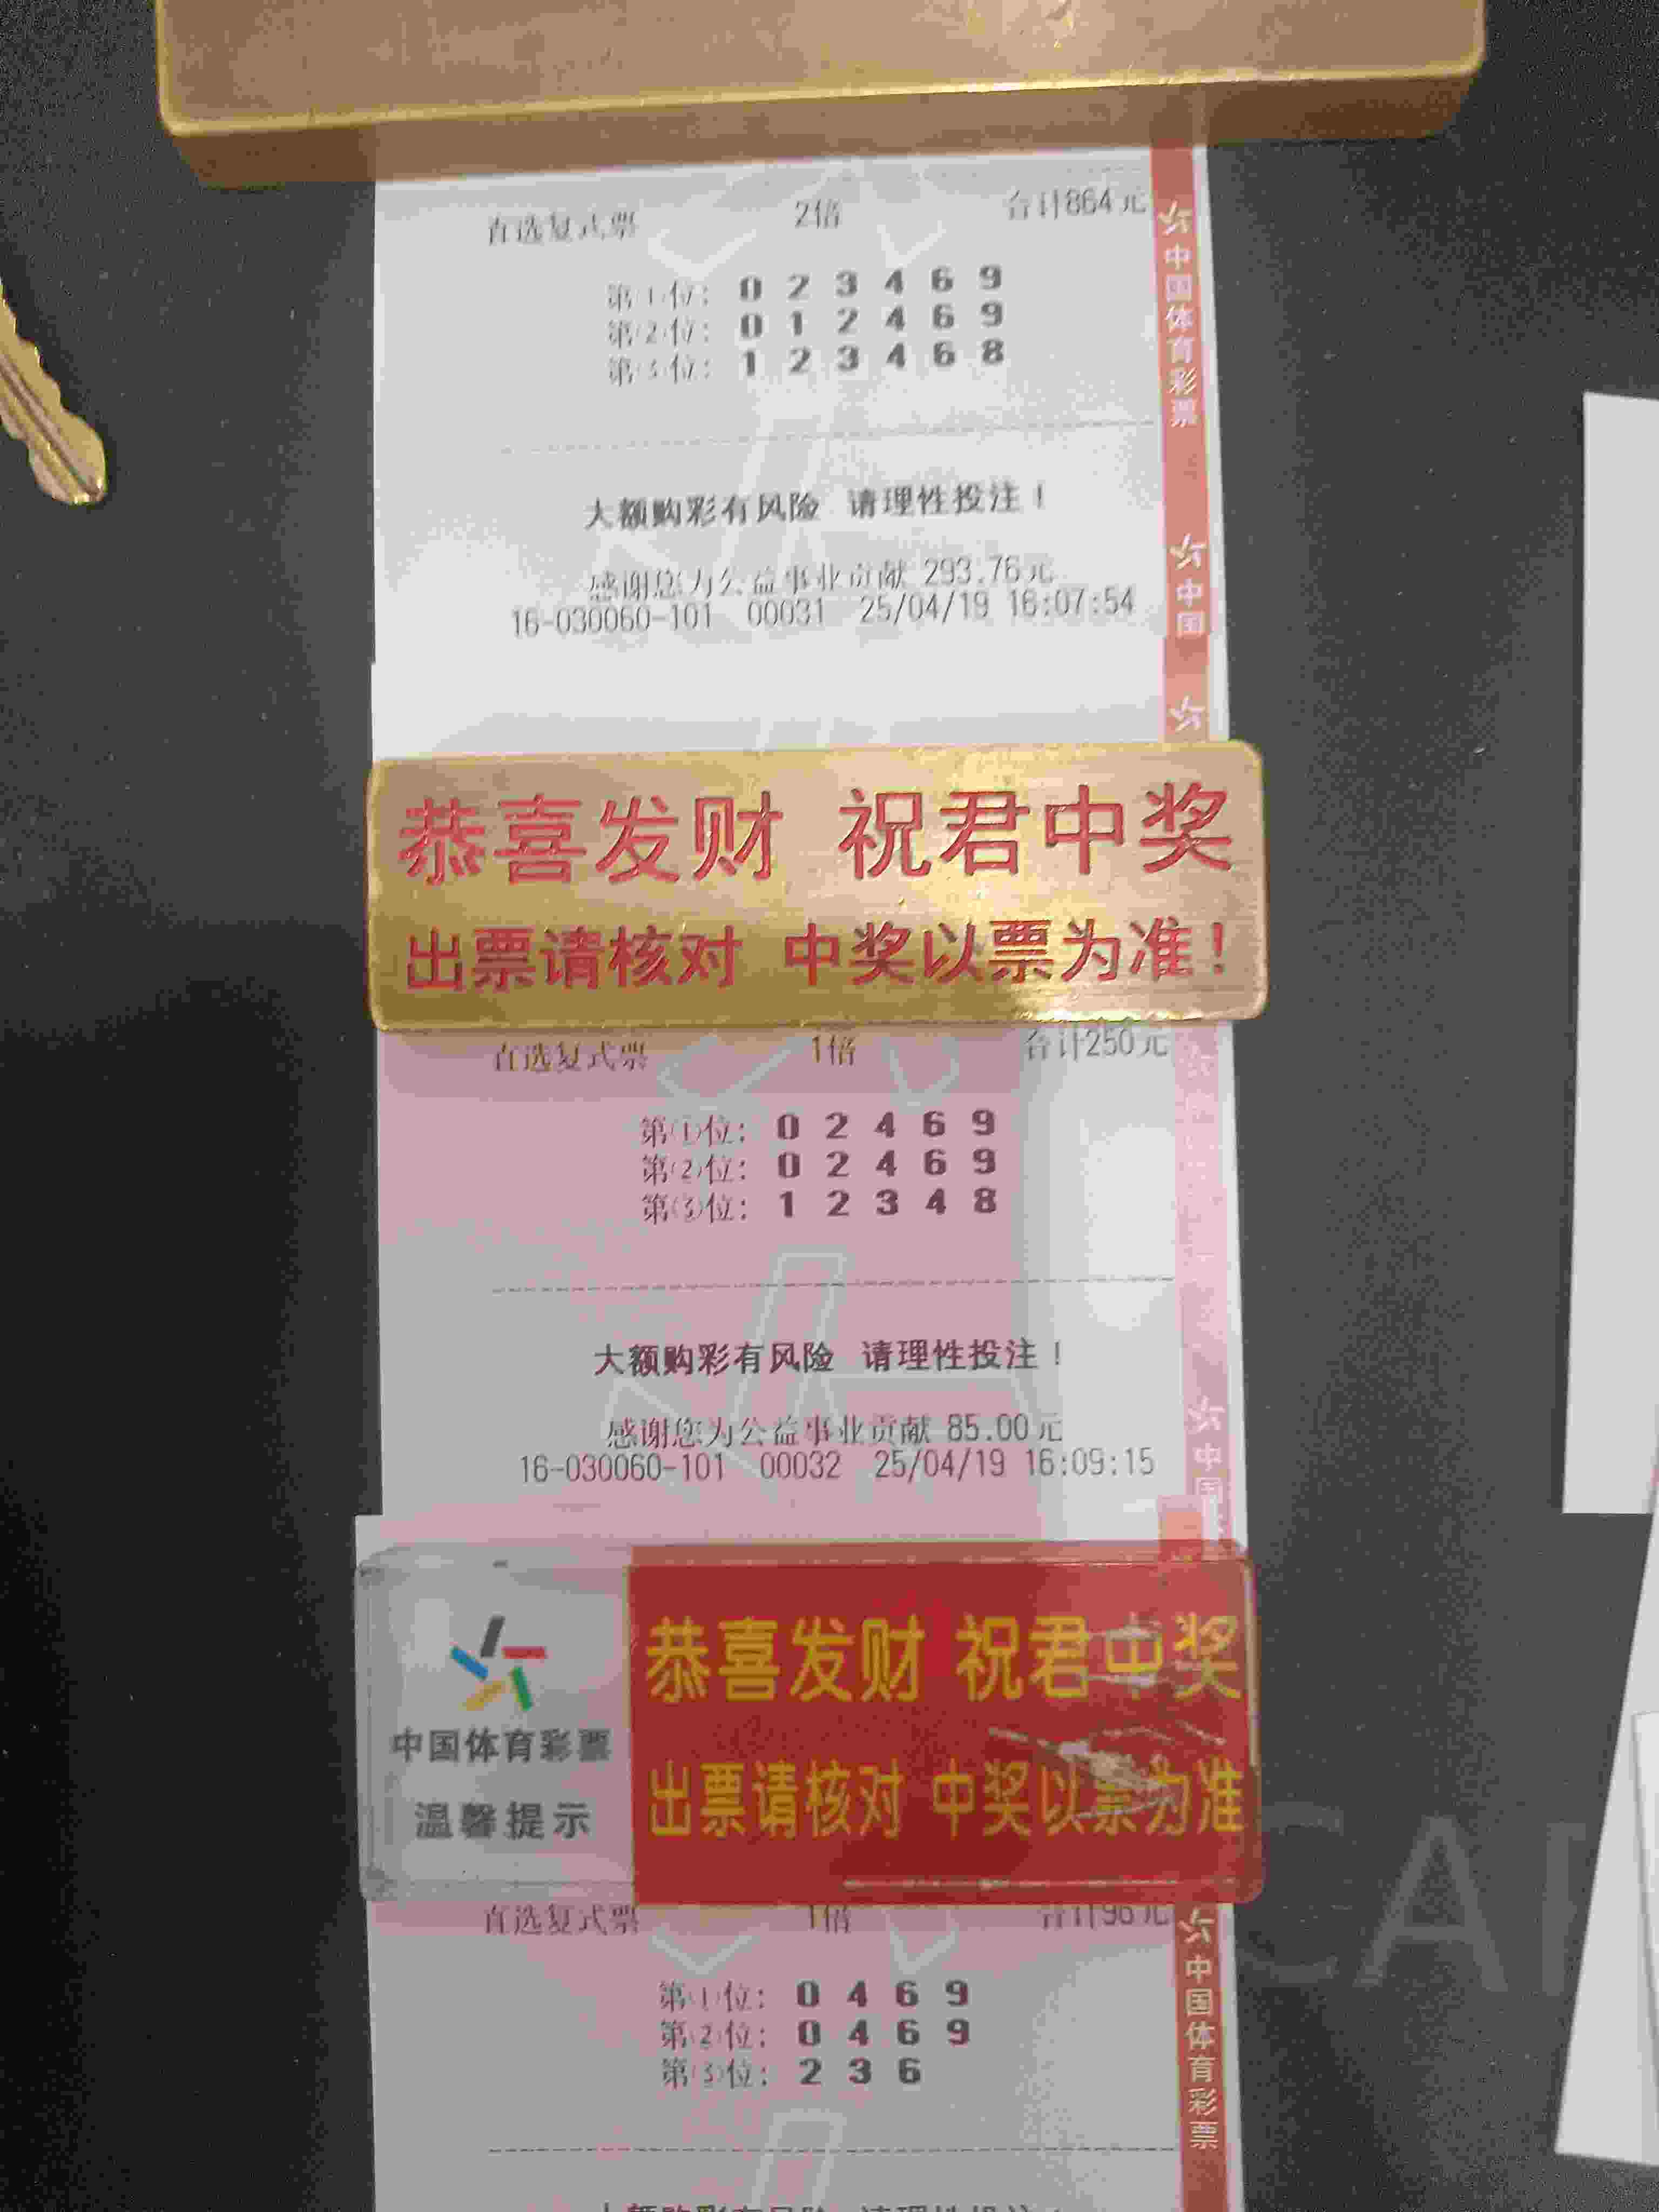 直选复式票 2倍 合计864元
第(1)位: 0 2 3 4 6 9
第(2)位: 0 1 2 4 6 9
第(3)位: 1 2 3 4 6 8
大额购彩有风险 请理性投注！
感谢您为公益事业贡献 293.76元
16-030060-101 00031 25/04/19 16:07:54
中国体育彩票
中国
恭喜发财 祝君中奖
出票请核对 中奖以票为准！
直选复式票 1倍 合计250元
第(1)位: 0 2 4 6 9
第(2)位: 0 2 4 6 9
第(3)位: 1 2 3 4 8
大额购彩有风险 请理性投注！
感谢您为公益事业贡献 85.00元
16-030060-101 00032 25/04/19 16:09:15
中国
中国体育彩票
温馨提示
恭喜发财 祝君中奖
出票请核对 中奖以票为准
直选复式票 1倍 合计96元
第(1)位: 0 4 6 9
第(2)位: 0 4 6 9
第(3)位: 2 3 6
中国体育彩票
大额购彩有风险 请理性投注！